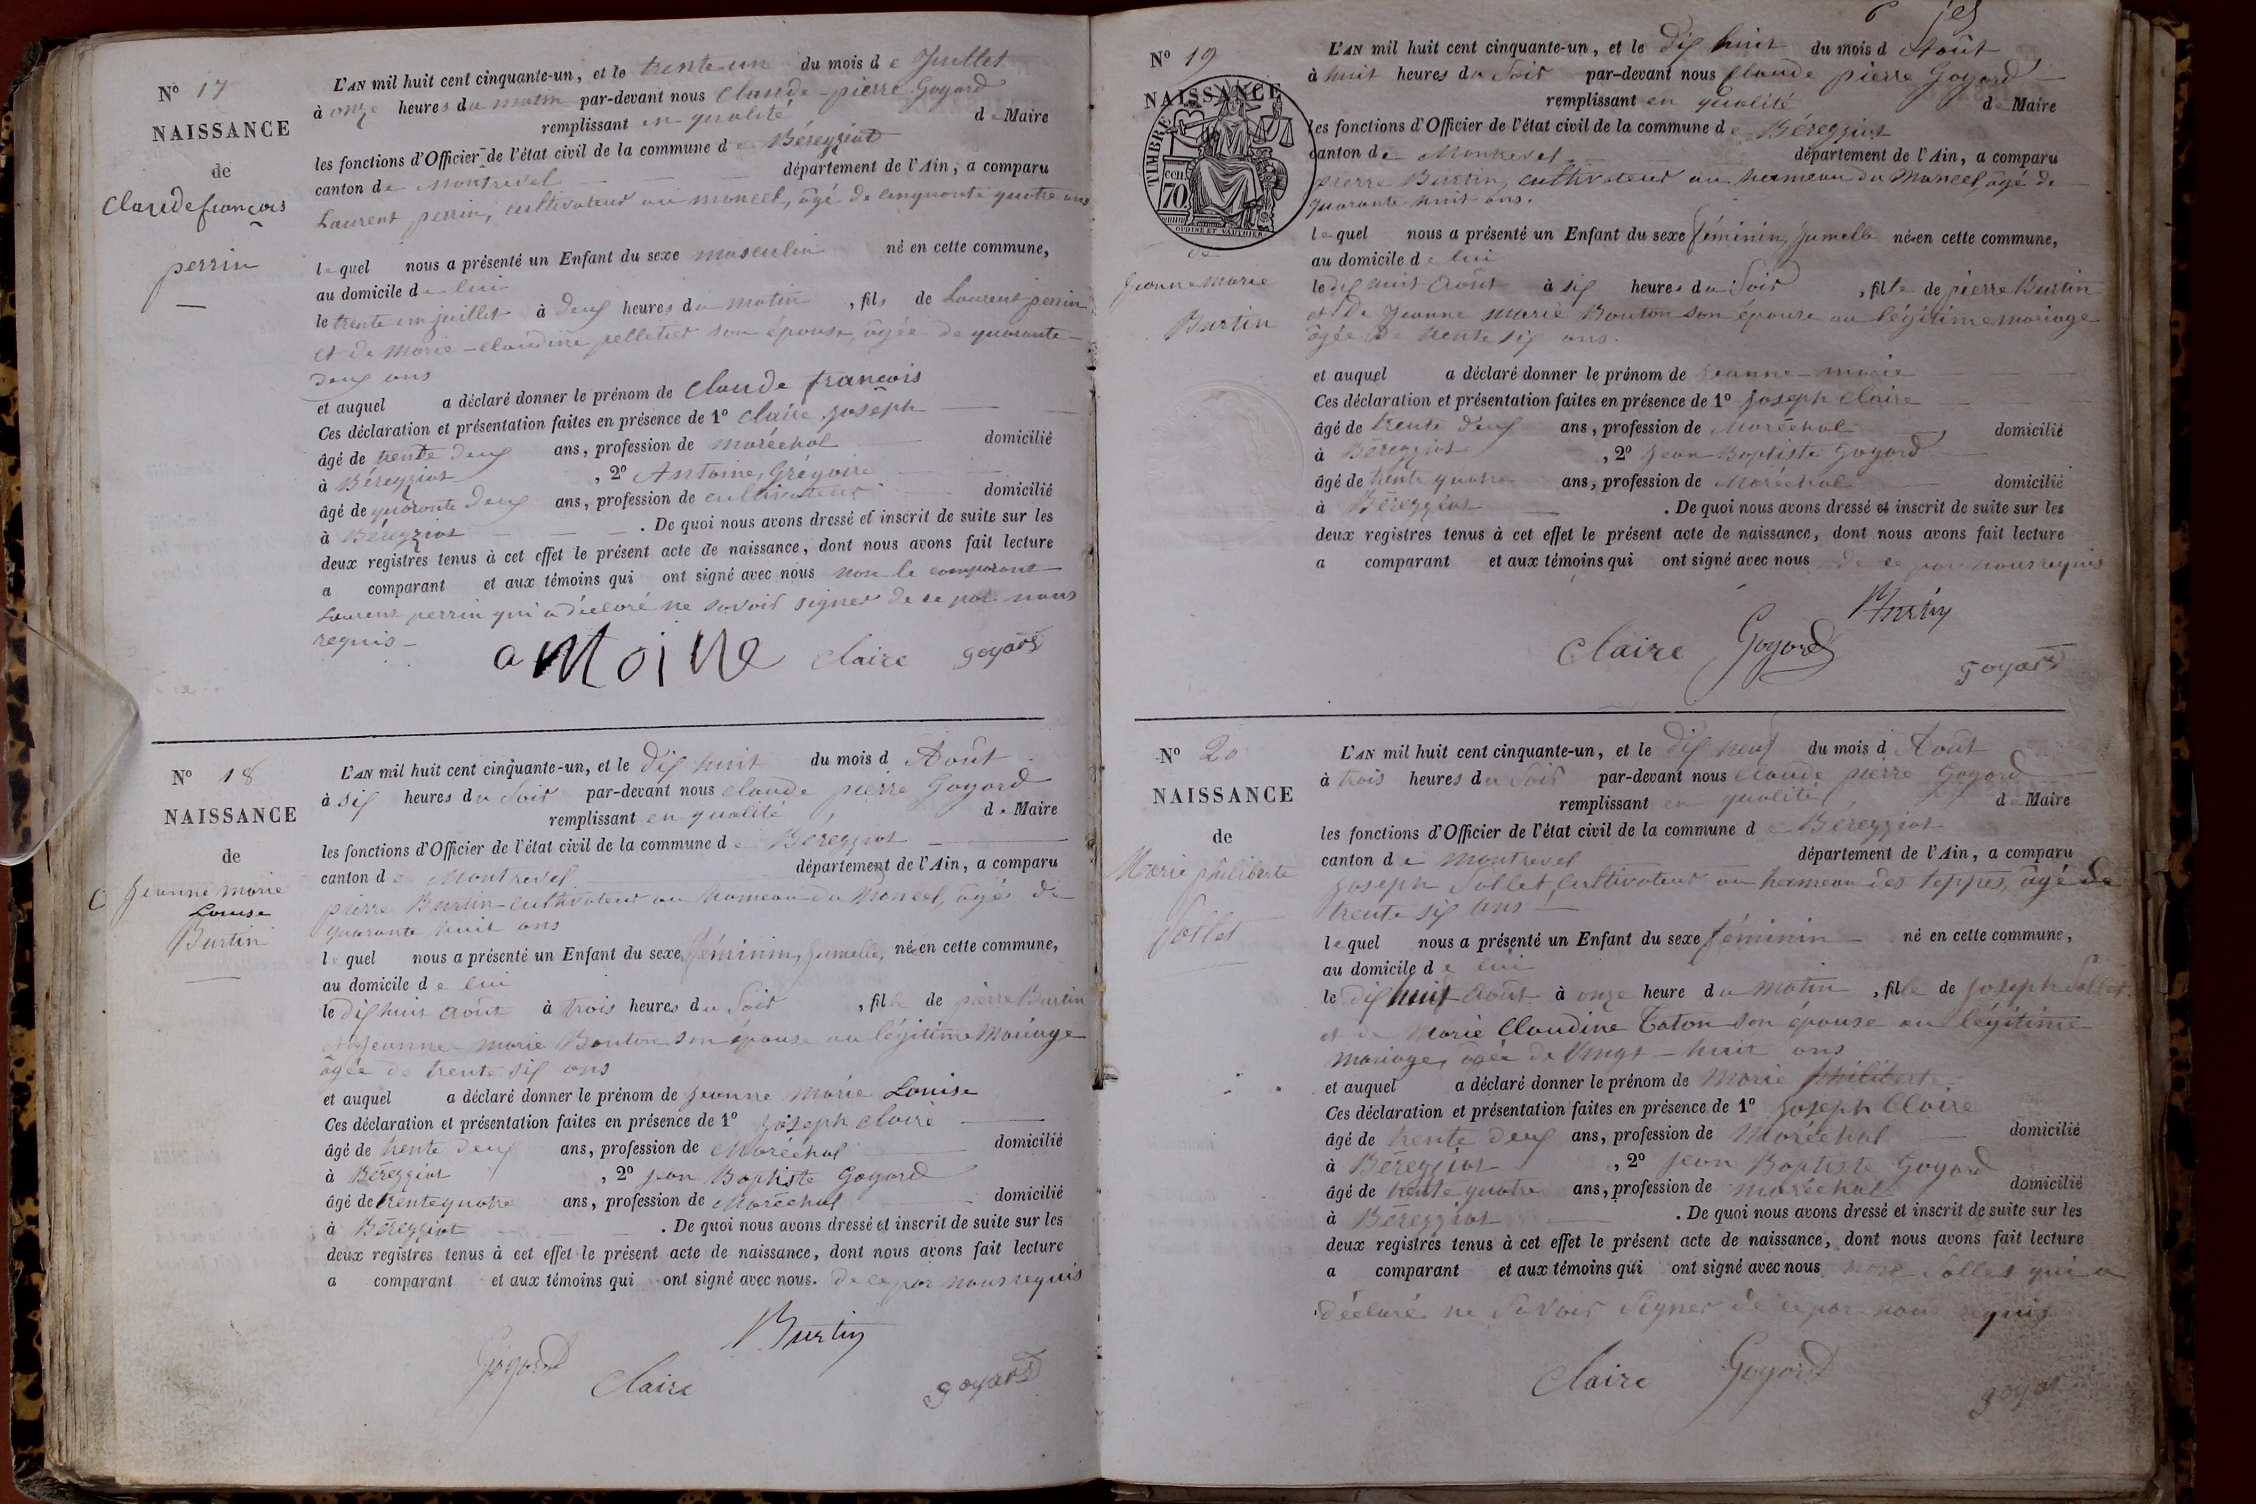 N° 17
NAISSANCE
de
Claude françois
perrin
L'AN mil huit cent cinquante-un, et le trente un du mois de Juillet
à onze heures du matin par-devant nous Claude-pierre Goyard
remplissant en qualité de Maire
les fonctions d'Officier de l'état civil de la commune de Béreyziat
canton de Montrevel département de l'Ain, a comparu
Laurent perrin, cultivateur au moncel, âgé de cinquante quatre ans
lequel nous a présenté un Enfant du sexe masculin né en cette commune,
au domicile de lui
le trente un juillet à deux heures du matin, fils de Laurent perrin
et de Marie-claudine pelletier son épouse, âgée de quarante-
deux ans
et auquel a déclaré donner le prénom de Claude françois
Ces déclaration et présentation faites en présence de 1° Claire Joseph
âgé de trente deux ans, profession de maréchal domicilié
à Béreyziat, 2° Antoine, Grégoire
âgé de quarante deux ans, profession de cultivateur domicilié
à Béreyziat. De quoi nous avons dressé et inscrit de suite sur les
deux registres tenus à cet effet le présent acte de naissance, dont nous avons fait lecture
a comparant et aux témoins qui ont signé avec nous non le comparant
Laurent perrin qui a déclaré ne savoir signer de ce par nous
requis-
antoine Claire goyard
N° 18
NAISSANCE
de
Jeanne marie
Louise
Burtin
L'AN mil huit cent cinquante-un, et le dix huit du mois d Août
à six heures du Soir par-devant nous Claude pierre Goyard
remplissant en qualité de Maire
les fonctions d'Officier de l'état civil de la commune de Béreyziat
canton de Montrevel département de l'Ain, a comparu
pierre Burtin cultivateur au hameau du Moncel, âgé de
quarante huit ans
lequel nous a présenté un Enfant du sexe féminin, jumelle, née en cette commune,
au domicile de lui
le dix huit août à trois heures du Soir, fille de pierre Burtin
et de Jeanne marie Bouton son épouse au légitime Mariage
âgée de trente six ans
et auquel a déclaré donner le prénom de Jeanne Marie Louise
Ces déclaration et présentation faites en présence de 1° Joseph Claire
âgé de trente deux ans, profession de Maréchal domicilié
à Béreyziat, 2° Jean Baptiste Goyard
âgé de trente quatre ans, profession de Maréchal domicilié
à Béreyziat. De quoi nous avons dressé et inscrit de suite sur les
deux registres tenus à cet effet le présent acte de naissance, dont nous avons fait lecture
a comparant et aux témoins qui ont signé avec nous. de ce par nous requis
Burtin
Goyard Claire goyard
N° 19
NAISSANCE
TIMBRE
cen.
70
OUDINÉ ET VAUTHIER
de
Jeanne Marie
Burtin
L'AN mil huit cent cinquante-un, et le dix huit du mois d Août
à huit heures du Soir par-devant nous Claude pierre Goyard
remplissant en qualité de Maire
les fonctions d'Officier de l'état civil de la commune de Béreyziat
canton de Montrevel département de l'Ain, a comparu
pierre Burtin, cultivateur au hameau du Moncel âgé de
quarante huit ans.
lequel nous a présenté un Enfant du sexe féminin, jumelle née en cette commune,
au domicile de lui
le dix huit août à six heures du Soir, fille de pierre Burtin
et de Jeanne marie Bouton son épouse au légitime mariage
âgée de trente six ans.
et auquel a déclaré donner le prénom de Jeanne-marie
Ces déclaration et présentation faites en présence de 1° Joseph Claire
âgé de trente deux ans, profession de Maréchal domicilié
à Béreyziat, 2° Jean Baptiste Goyard
âgé de trente quatre ans, profession de Maréchal domicilié
à Béreyziat. De quoi nous avons dressé et inscrit de suite sur les
deux registres tenus à cet effet le présent acte de naissance, dont nous avons fait lecture
a comparant et aux témoins qui ont signé avec nous de ce par nous requis
Burtin
Claire Goyard
goyard
N° 20
NAISSANCE
de
Marie philiberte
Sollet
L'AN mil huit cent cinquante-un, et le dix neuf du mois d Août
à trois heures du Soir par-devant nous Claude pierre Goyard
remplissant en qualité de Maire
les fonctions d'Officier de l'état civil de la commune de Béreyziat
canton de Montrevel département de l'Ain, a comparu
Joseph Sollet, cultivateur au hameau des teppes, âgé de
trente six ans
lequel nous a présenté un Enfant du sexe féminin né en cette commune,
au domicile de lui
le dix huit août à onze heure du matin, fille de Joseph Sollet
et de Marie Claudine Caton son épouse au légitime
mariage, âgée de Vingt-huit ans
et auquel a déclaré donner le prénom de Marie philiberte
Ces déclaration et présentation faites en présence de 1° Joseph Claire
âgé de trente deux ans, profession de Maréchal domicilié
à Béreyziat, 2° Jean Baptiste Goyard
âgé de trente quatre ans, profession de maréchal domicilié
à Béreyziat. De quoi nous avons dressé et inscrit de suite sur les
deux registres tenus à cet effet le présent acte de naissance, dont nous avons fait lecture
a comparant et aux témoins qui ont signé avec nous non Sollet qui a
déclaré ne Savoir Signer de ce par nous requis
Claire Goyard goyard